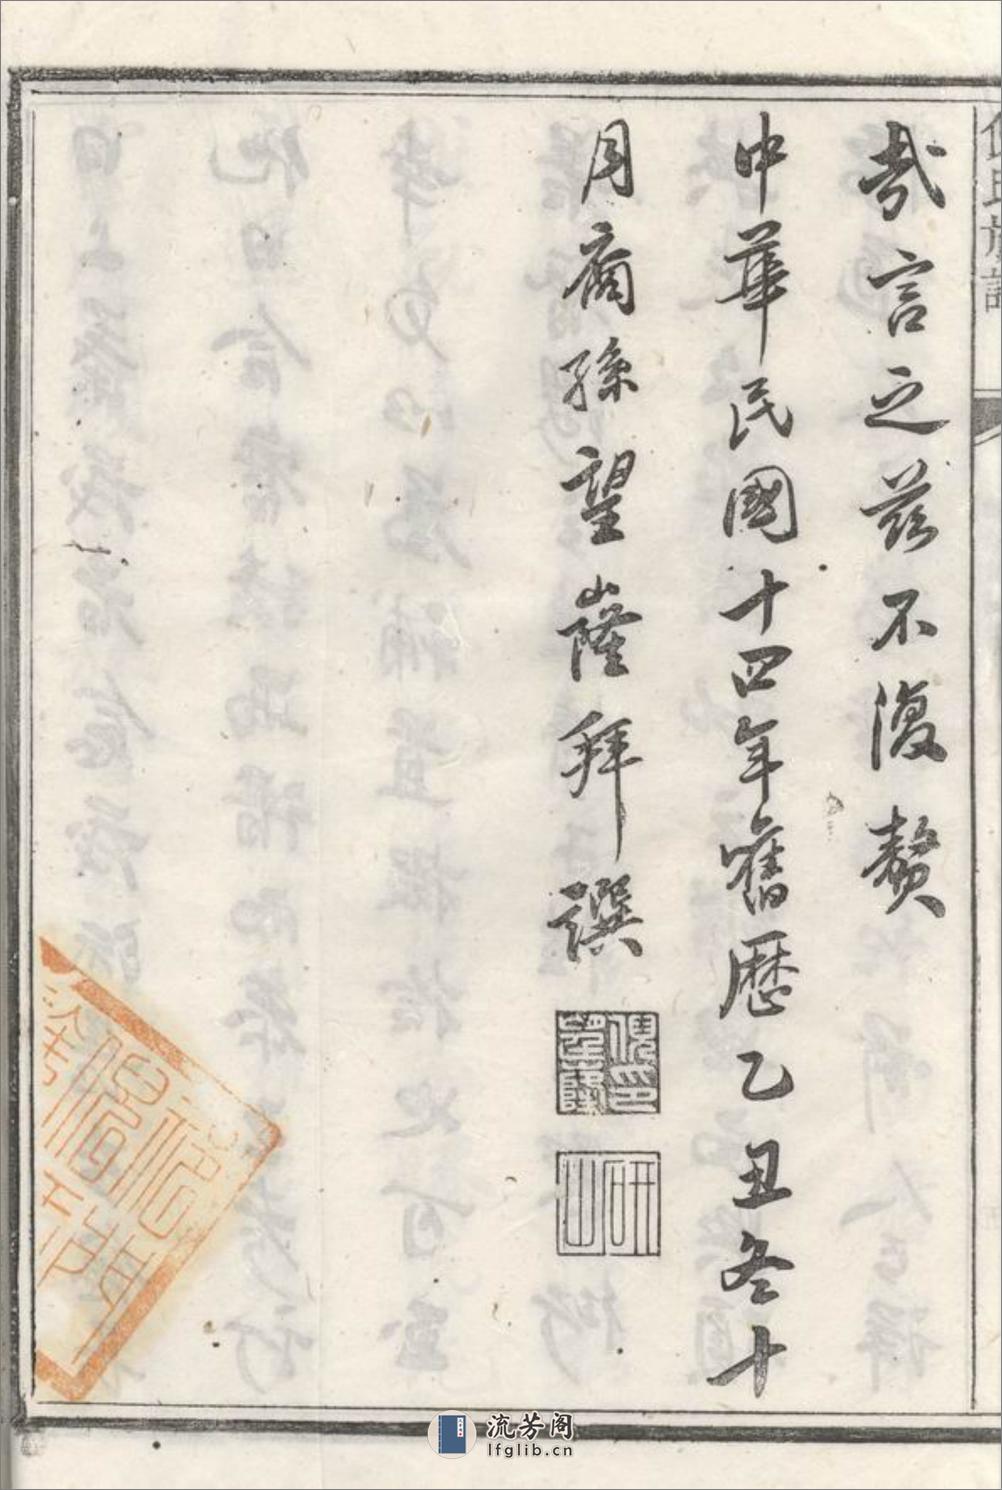 氏族譜
哉言之茲不復贅
中華民國十四年舊歷乙丑冬十
月裔孫望隆拜譔
倪印望隆
研山
流芳阁
lfglib.cn